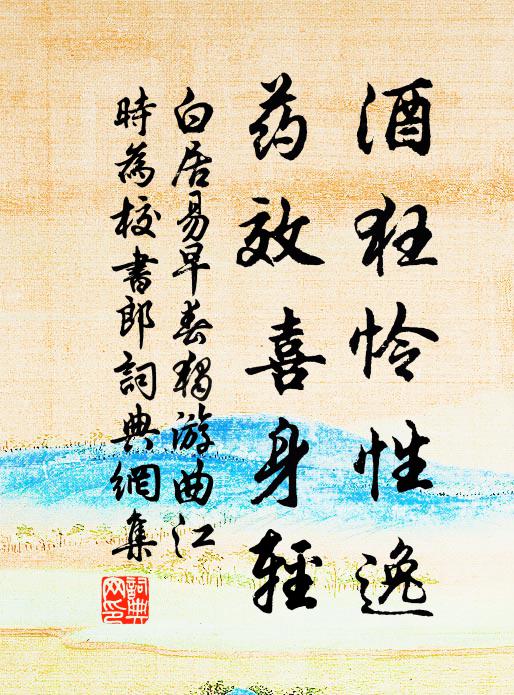 酒狂怜性逸
药效喜身輕
白居易早春獨游曲江
時為校書郎詞典網集
詞典網印